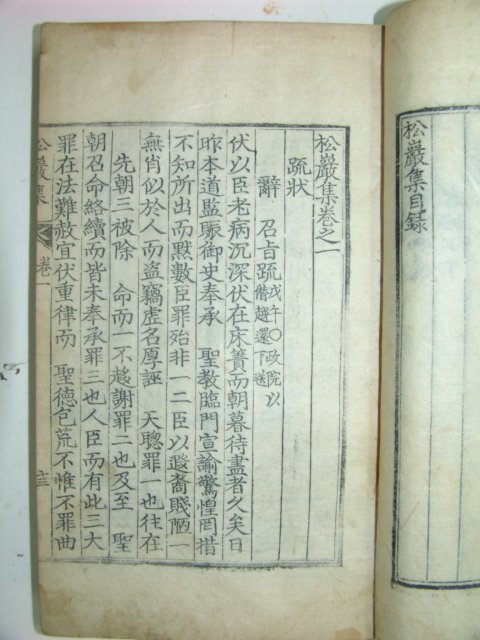 松巖集目錄
松巖集卷之一
疏狀
辭 召旨疏 戊午○政院以
僭越還下送
伏以臣老病沉深伏在床簀而朝暮待盡者久矣日
昨本道監賑御史奉承 聖教臨門宣諭驚惶罔措
不知所出而默數臣罪殆非一二臣以遐裔賤陋一
無肖似於人而盜竊虛名厚誣 天聰罪一也徃在
先朝三被除 命而一不趍謝罪二也及至 聖
朝召命絡續而皆未奉承罪三也人臣而有此三大
罪在法難赦宜伏重律而 聖德包荒不惟不罪曲
松巖集
卷一